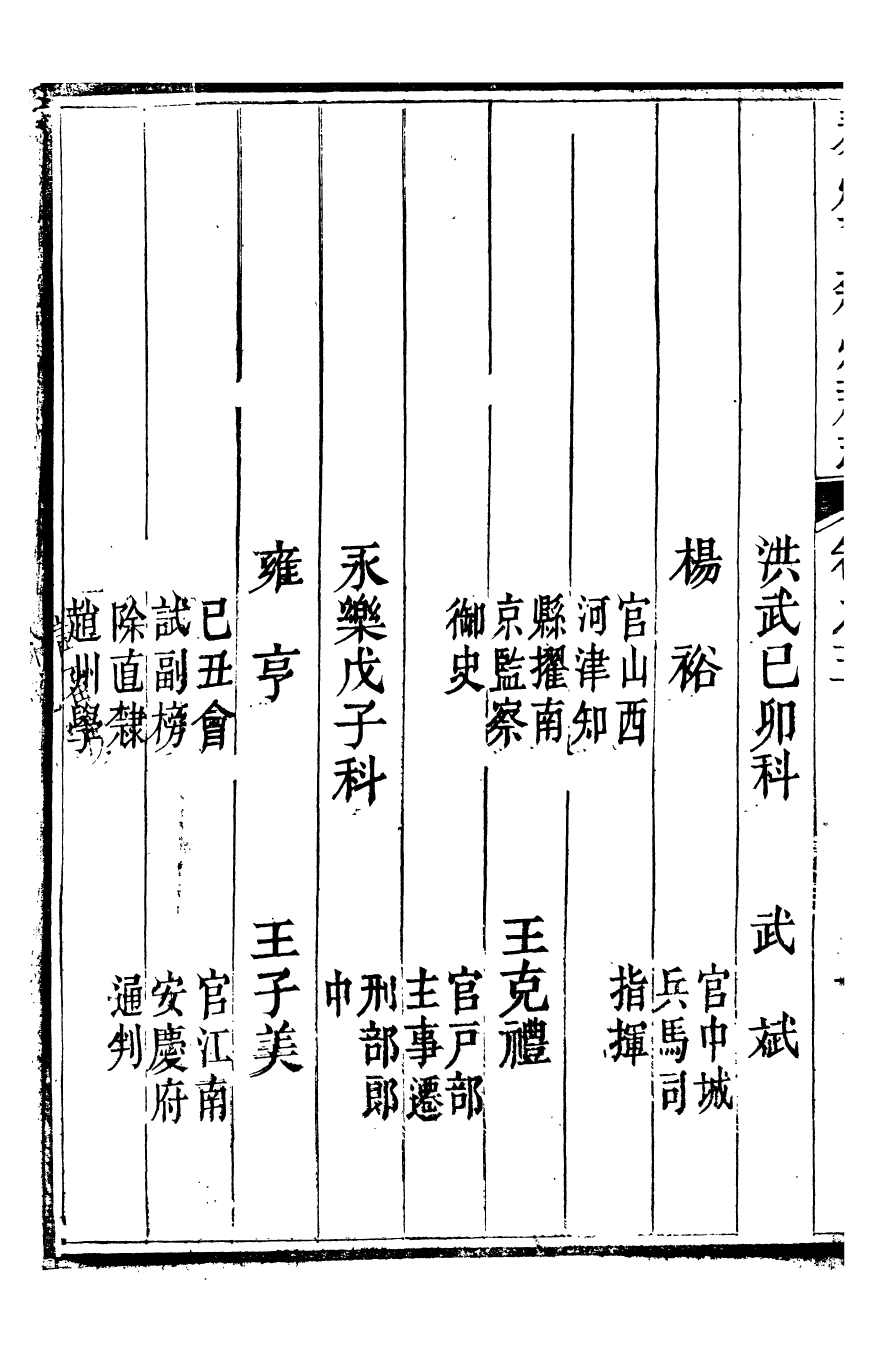 洪武已卯科
武斌
官中城
兵馬司
指揮
楊裕
官山西
河津知
縣擢南
京監察
御史
王克禮
官戸部
主事遷
刑部郎
中
永樂戊子科
雍亨
已丑會
試副榜
除直隸
趙州學
王子美
官江南
安慶府
通判